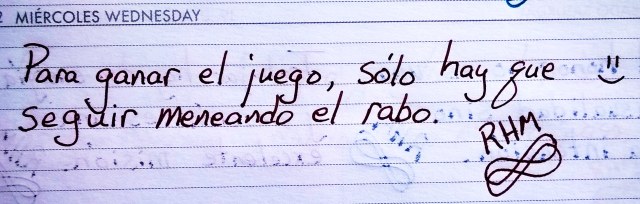 MIÉRCOLES WEDNESDAY
Para ganar el juego, sólo hay que
seguir meneando el rabo.
RHM